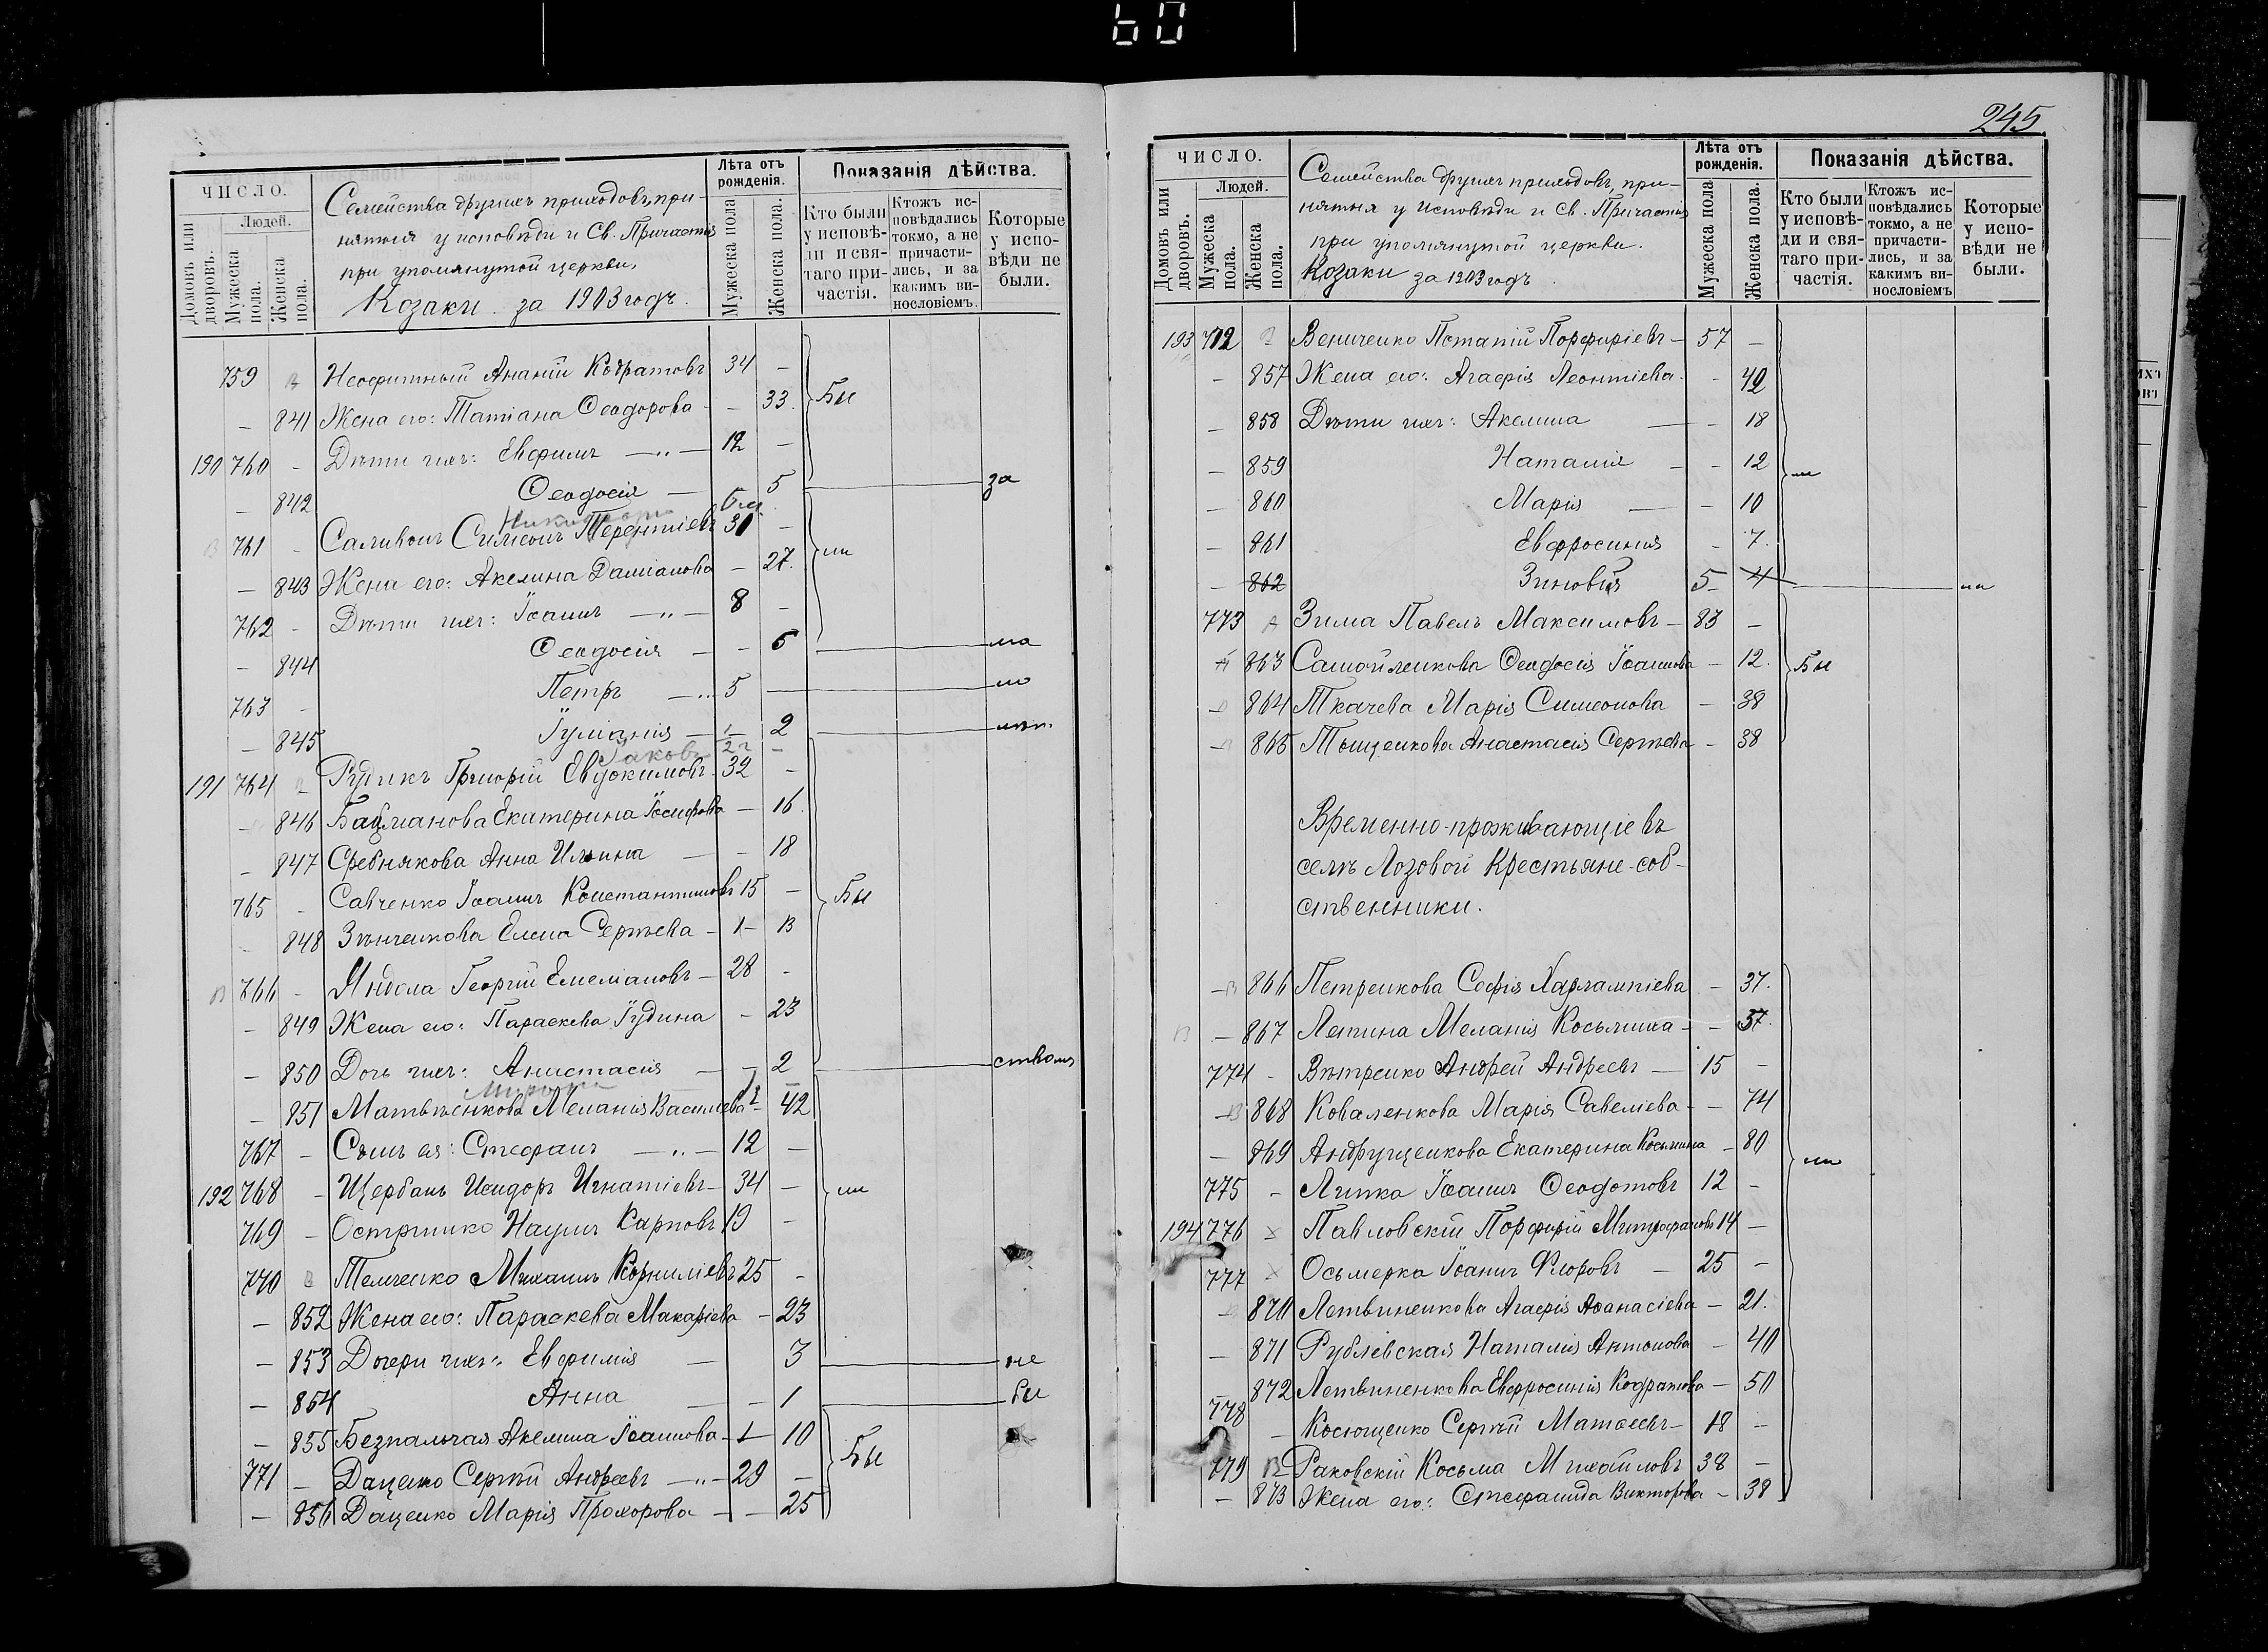 60
ЧИСЛО.
Людей.
Домовъ или дворовъ.
Мужеска пола.
Женска пола.
Семейства другихъ приходовъ, при-
нятыя у исповѣди и Св. Причастія
при упомянутой церкви.
Козаки за 1903 годъ.
Лѣта отъ рожденія.
Мужеска пола
Женска пола.
Показанія дѣйства.
Кто были у исповѣ-ди и свя-таго при-частія.
Ктожъ ис-повѣдались токмо, а не причасти-лись, и за какимъ ви-нословіемъ.
Которые у испо-вѣди не были.
759 Неофитный Ананій Кодратовъ 34 -
- 841 Жена его: Татіана Ѳеодорова - - 33. Бы
190 760 - Дѣти ихъ: Евфимъ — „ — 12 -
- 842 Ѳеодосія — 5 за
Никифоръ
761 - Саливонъ Симеонъ Терентіевъ 31 -
- 843 Жена его: Акелина Даміанова - 27.
762 - Дѣти ихъ: Іоаннъ — „ — 8 -
- 844 Ѳеодосія - - 6
763 - Петръ — „ 5
- 845 Іуліанія - 2
Іаковъ 2 г
191 764 Рудикъ Григорій Евдокимовъ 32 -
- 846 Бацманова Екатерина Іосифова - 16.
- 847 Сребнякова Анна Ильина — - 18
765 - Савченко Іоаннъ Константиновъ 15 - Бы
- 848 Зѣнченкова Елена Сергѣева
766 - Яндола Георгій Емеліановъ - 28 -
- 849 Жена его: Параскева Іудина - 23
- 850 Дочь ихъ: Анастасія - - 2
- 851 Матвѣенкова Меланія Васильева 42
767 - Сынъ ея: Стефанъ — „ — 12 -
192 768 - Щербань Исидоръ Игнатіевъ - 34 -
769 - Остринко Наумъ Карповъ 19 -
770 Темченко Михаилъ Корниліевъ 25 -
- 852 Жена его: Параскева Макаріева - 23
- 853 Дочери ихъ: Евфимія — 3 не
- 854 Анна — - 1 бы
- 855 Безпальчая Акелина Іоаннова - 10
771 - Даценко Сергѣй Андреевъ — „ — 29 - Бы
- 856 Даценко Марія Прохорова - - 25
245
ЧИСЛО.
Людей.
Домовъ или дворовъ.
Мужеска пола.
Женска пола.
Семейства другихъ приходовъ, при-
нятыя у исповѣди и Св. Причастія
при упомянутой церкви.
Козаки за 1903 годъ
Лѣта отъ рожденія.
Мужеска пола
Женска пола.
Показанія дѣйства.
Кто были у исповѣ-ди и свя-таго при-частія.
Ктожъ ис-повѣдались токмо, а не причасти-лись, и за какимъ ви-нословіемъ
Которые у испо-вѣди не были.
193 772 Вениченко Порфиріевъ - 57 -
- 857 Жена его: Агафія Леонтіева - - 42
- 858 Дѣти ихъ: Акелина — - 18
- 859 Наталія - - 12
- 860 Марія — - 10
- 861 Евфросинія - 7.
- 862 Зиновія 5 4
773 Зима Павелъ Максимовъ - 83 -
863 Самойленкова Ѳеодосія Іоаннова - 12. Бы
864 Ткачева Марія Симеонова - 38
865 Тыщенкова Анастасія Сергѣева - 38
Временно-проживающіе въ
селѣ Лозовой Крестьяне-соб-
ственники.
866 Петренкова Софія Харлампіева - 37.
- 867 Лепина Меланія Косьмина - - 37.
774 - Вѣтренко Андрей Андреевъ — 15 -
868 Коваленкова Марія Савеліева - - 74
- 869 Андрущенкова Екатерина Косьмина - 80
775 - Липка Іоаннъ Ѳеодотовъ 12 -
194 776 Павловскій Порфирій Митрофановъ 14 -
777 Осьмерка Іоаннъ Флоровъ - 25 -
870 Летвиненкова Агафія Аѳанасіева - 21.
- 871 Рублевская Наталія Антонова - 40
- 872 Летвиненкова Евфросинія Кодратова - 50
778 - Косющенко Сергѣй Матѳеевъ - 18 -
779 Раковскій Косьма Михайловъ 38 -
- 873 Жена его: Стефанида Викторова - 38